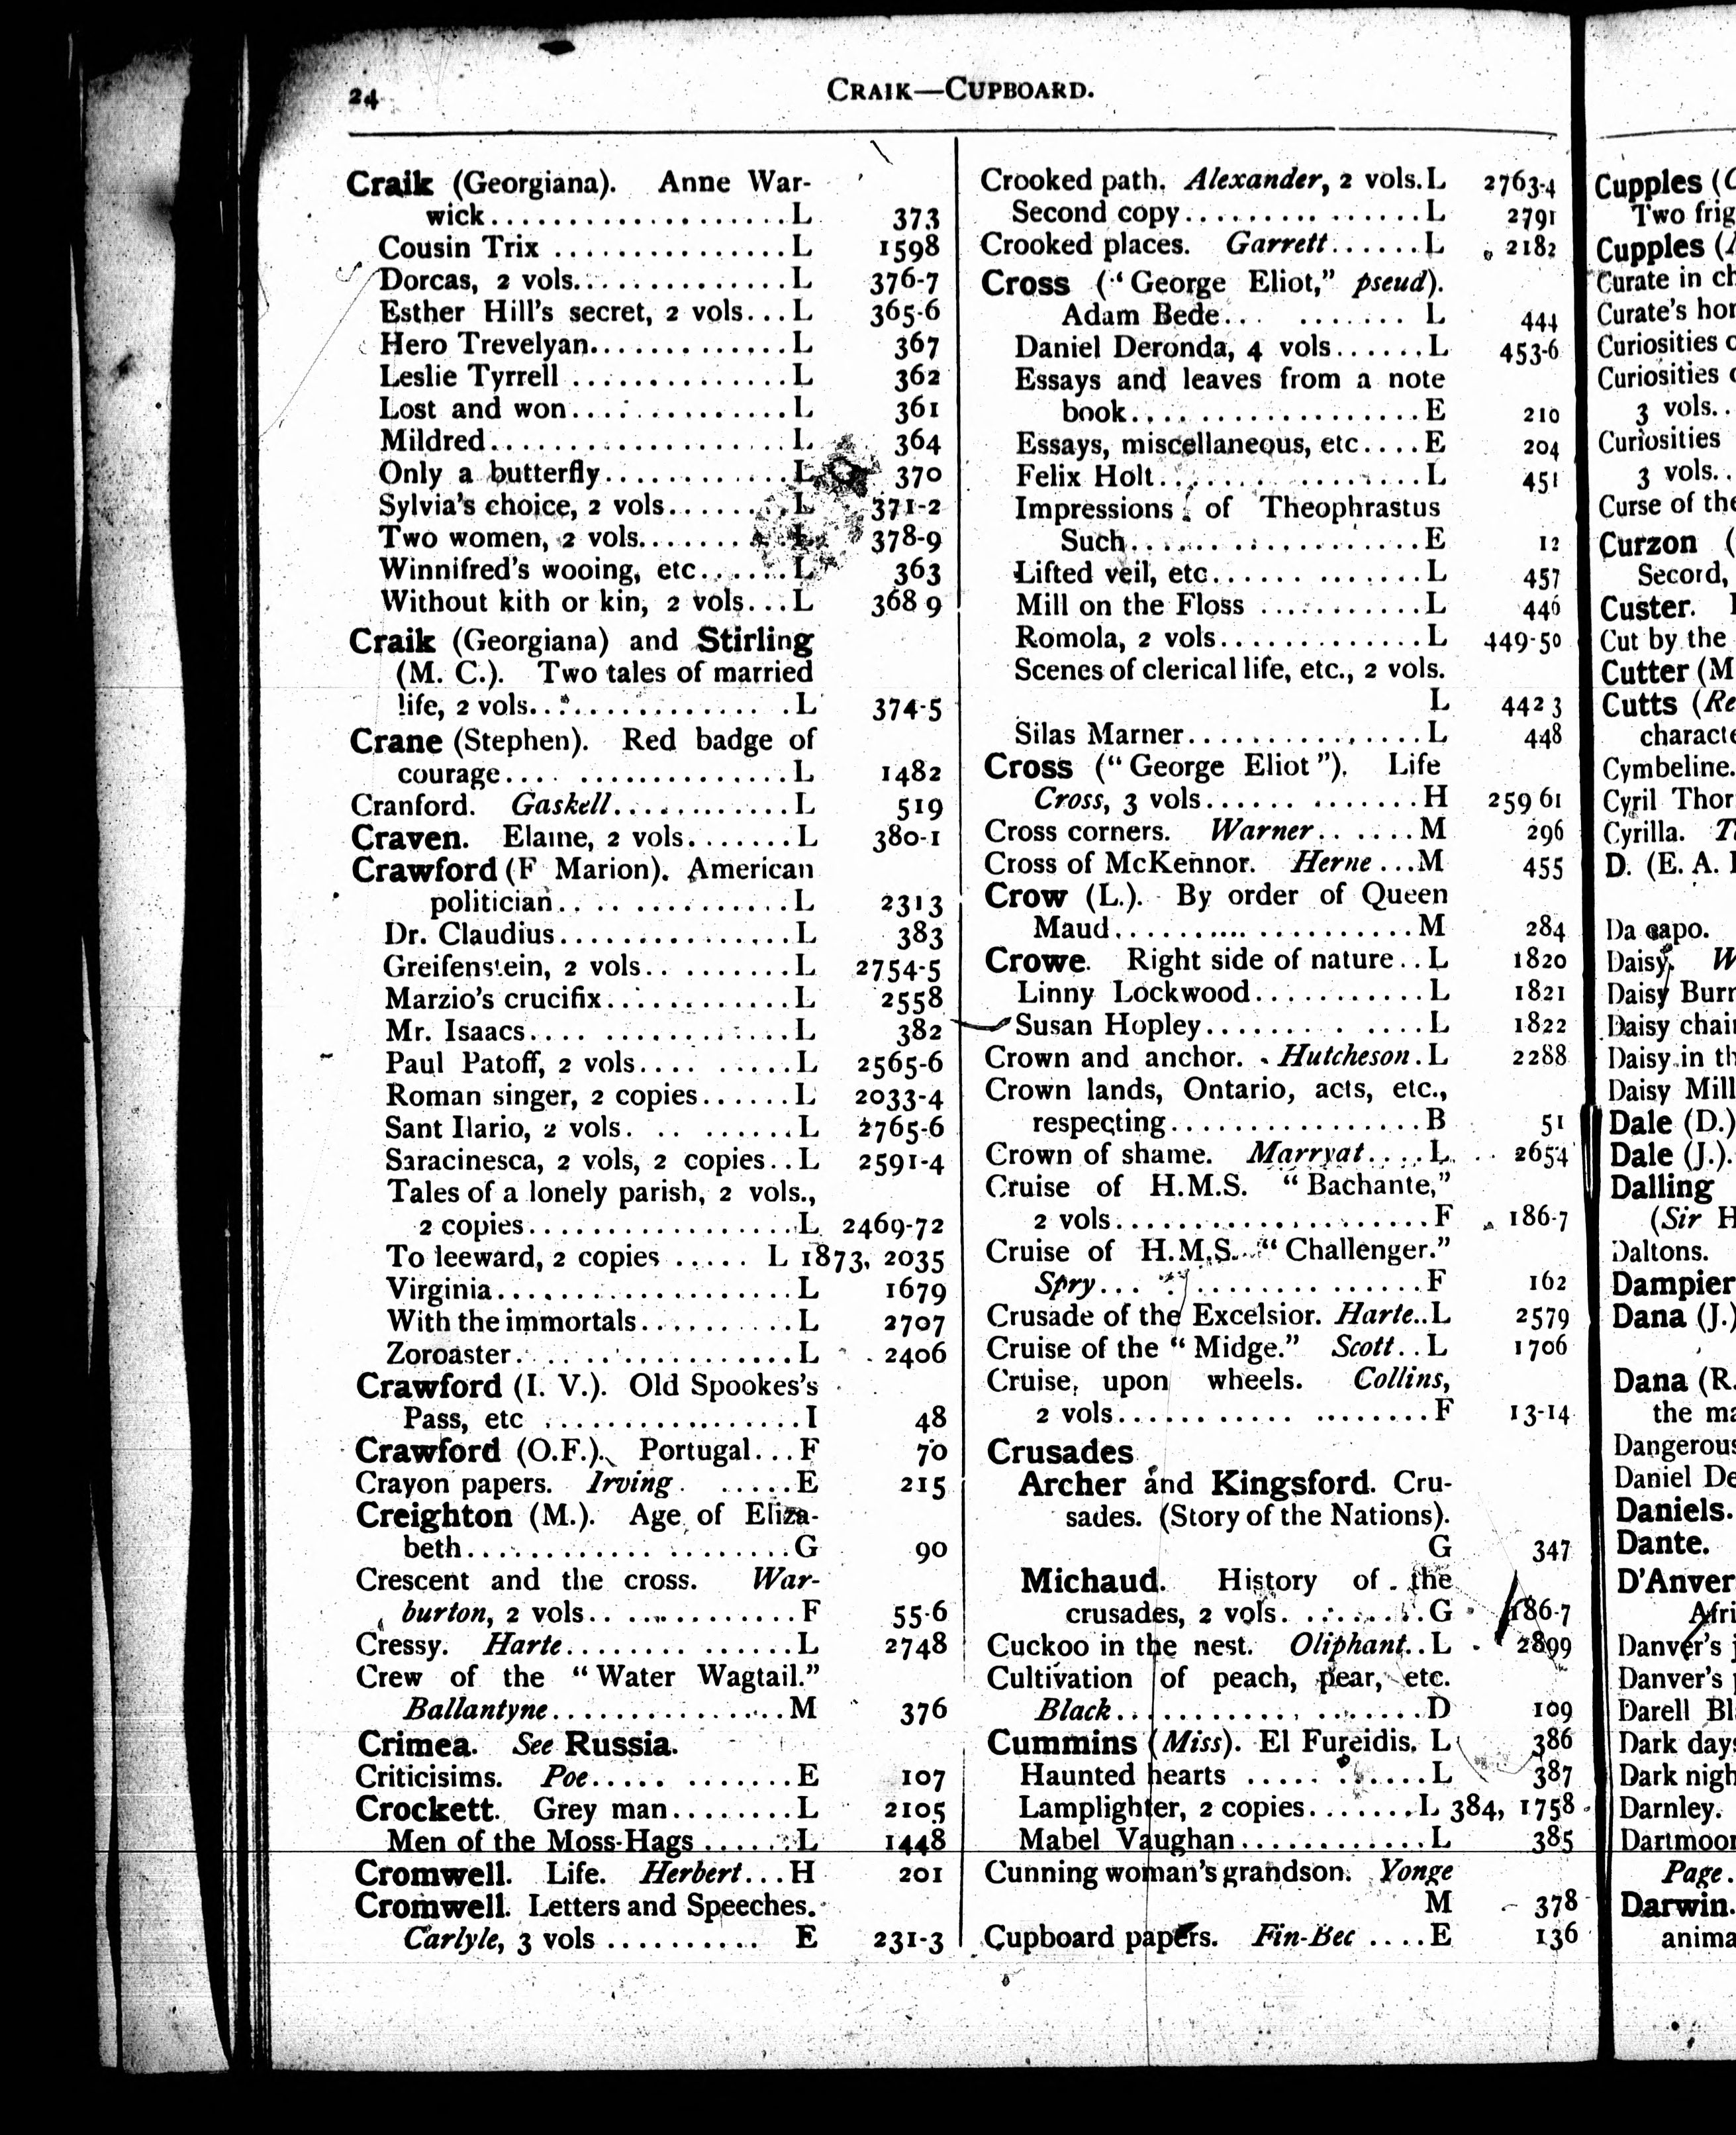 24
CRAIK—CUPBOARD.
Craik (Georgiana). Anne War-
wick....................L 373
Cousin Trix ...............L 1598
Dorcas, 2 vols..............L 376-7
Esther Hill's secret, 2 vols...L 365-6
Hero Trevelyan.............L 367
Leslie Tyrrell ..............L 362
Lost and won...............L 361
Mildred....................L 364
Only a butterfly............L 370
Sylvia's choice, 2 vols........L 371-2
Two women, 2 vols..........L 378-9
Winnifred's wooing, etc......L 363
Without kith or kin, 2 vols...L 368 9
Craik (Georgiana) and Stirling
(M. C.). Two tales of married
life, 2 vols.................L 374-5
Crane (Stephen). Red badge of
courage.... ..............L 1482
Cranford. Gaskell............L 519
Craven. Elaine, 2 vols.......L 380-1
Crawford (F Marion). American
politician.... ...........L 2313
Dr. Claudius...............L 383
Greifenstein, 2 vols.. ........L 2754-5
Marzio's crucifix............L 2558
Mr. Isaacs.... ............L 382
Paul Patoff, 2 vols.... ......L 2565-6
Roman singer, 2 copies......L 2033-4
Sant Ilario, 2 vols. .. .......L 2765-6
Saracinesca, 2 vols, 2 copies..L 2591-4
Tales of a lonely parish, 2 vols.,
2 copies..................L 2469-72
To leeward, 2 copies ..... L 1873, 2035
Virginia...................L 1679
With the immortals..........L 2707
Zoroaster.. .. .............L 2406
Crawford (I. V.). Old Spookes's
Pass, etc .................I 48
Crawford (O.F.). Portugal...F 70
Crayon papers. Irving. .....E 215
Creighton (M.). Age of Eliza-
beth.......... .........G 90
Crescent and the cross. War-
burton, 2 vols.. ...........F 55-6
Cressy. Harte......... ......L 2748
Crew of the "Water Wagtail."
Ballantyne................M 376
Crimea. See Russia.
Criticisims. Poe..... ........E 107
Crockett. Grey man........L 2105
Men of the Moss-Hags ......L 1448
Cromwell. Life. Herbert...H 201
Cromwell. Letters and Speeches.
Carlyle, 3 vols .......... E 231-3
Crooked path. Alexander, 2 vols.L 2763-4
Second copy......... ......L 2791
Crooked places. Garrett......L 2182
Cross ("George Eliot," pseud).
Adam Bede... ....... L 444
Daniel Deronda, 4 vols......L 453-6
Essays and leaves from a note
book....................E 210
Essays, miscellaneous, etc....E 204
Felix Holt....... .........L 451
Impressions of Theophrastus
Such....................E 12
Lifted veil, etc...... .......L 457
Mill on the Floss ...........L 446
Romola, 2 vols..............L 449-50
Scenes of clerical life, etc., 2 vols.
L 442 3
Silas Marner................L 448
Cross ("George Eliot"). Life
Cross, 3 vols...... .......H 259 61
Cross corners. Warner.......M 296
Cross of McKennor. Herne ...M 455
Crow (L.). By order of Queen
Maud.......... ..........M 284
Crowe. Right side of nature..L 1820
Linny Lockwood...........L 1821
Susan Hopley....... . ....L 1822
Crown and anchor. Hutcheson.L 2288
Crown lands, Ontario, acts, etc.,
respecting................B 51
Crown of shame. Marryat....L 2654
Cruise of H.M.S. "Bachante,"
2 vols....................F 186-7
Cruise of H.M.S. "Challenger."
Spry... ..................F 162
Crusade of the Excelsior. Harte..L 2579
Cruise of the "Midge." Scott..L 1706
Cruise, upon wheels. Collins,
2 vols........... ........F 13-14
Crusades
Archer and Kingsford. Cru-
sades. (Story of the Nations).
G 347
Michaud. History of the
crusades, 2 vols. .........G 186-7
Cuckoo in the nest. Oliphant..L 2899
Cultivation of peach, pear, etc.
Black.....................D 109
Cummins (Miss). El Fureidis. L 386
Haunted hearts ............L 387
Lamplighter, 2 copies.......L 384, 1758
Mabel Vaughan............L 385
Cunning woman's grandson. Yonge
M 378
Cupboard papers. Fin-Bec ....E 136
Cupples
Two
Cupples
Curate in
Curate's
Curiosities
Curiosities
3 vols..
Curiosities
3 vols..
Curse of the
Curzon (
Secord,
Custer.
Cut by the
Cutter (M
Cutts (Re
Cymbeline.
Cyril
Cyrilla.
D. (E. A.
Da capo.
Daisy.
Daisy
Daisy
Daisy in
Daisy
Dale (D.)
Dale (J.).
Dalling
(Sir H
Daltons.
Dampier
Dana (J.)
Dana (R.
the
Dangerous
Daniel
Daniels.
Dante.
D'Anver
Danver's
Danver's
Darell
Dark
Dark
Darnley.
Page.
Darwin.